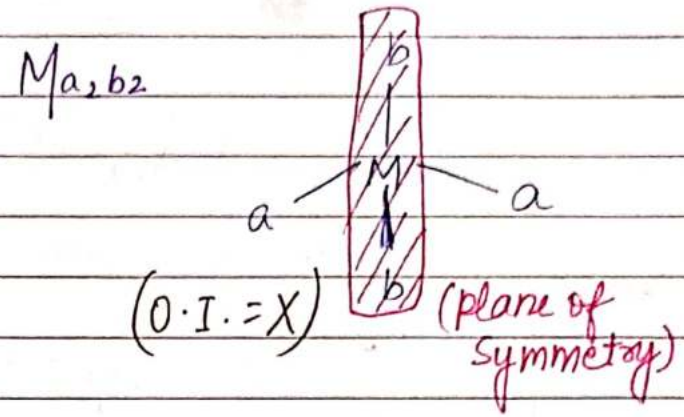 Ma₂b₂
b
M
a a
b
(O.I. = X)
(plane of
symmetry)